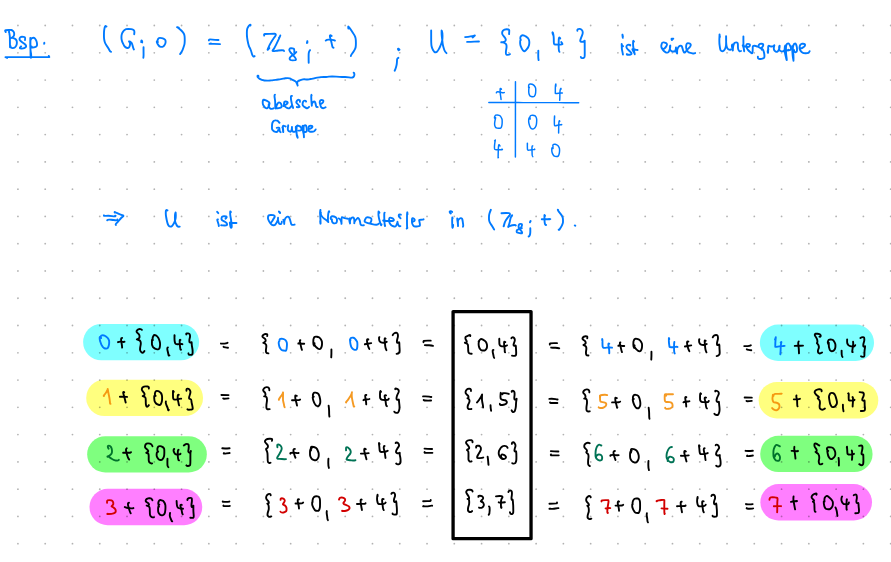 Bsp: (G; o) = (ℤ₈; +) ; U = {0, 4} ist eine Untergruppe
abelsche
Gruppe
+ | 0 4
0 | 0 4
4 | 4 0
⇒ U ist ein Normalteiler in (ℤ₈; +).
0 + {0,4} = {0+0, 0+4} = {0,4} = {4+0, 4+4} = 4 + {0,4}
1 + {0,4} = {1+0, 1+4} = {1,5} = {5+0, 5+4} = 5 + {0,4}
2 + {0,4} = {2+0, 2+4} = {2,6} = {6+0, 6+4} = 6 + {0,4}
3 + {0,4} = {3+0, 3+4} = {3,7} = {7+0, 7+4} = 7 + {0,4}